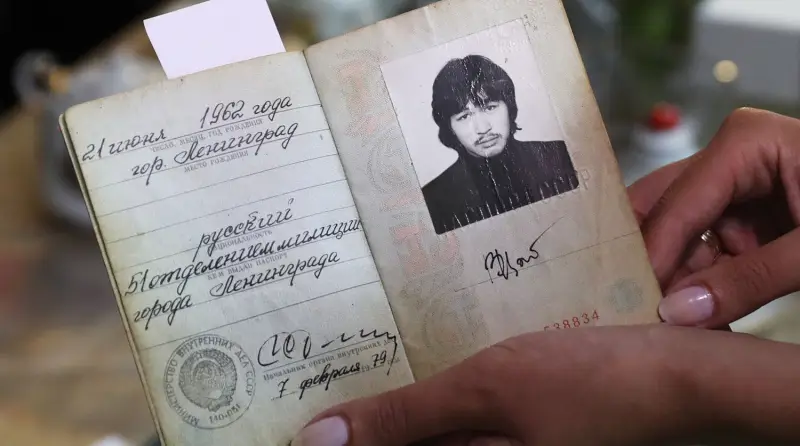 21 июня 1962 года
ЧИСЛО, МЕСЯЦ, ГОД РОЖДЕНИЯ
гор. Ленинград
МЕСТО РОЖДЕНИЯ
русский
НАЦИОНАЛЬНОСТЬ
51 отделением милиции
КЕМ ВЫДАН ПАСПОРТ
города Ленинграда
Начальник органа внутренних дел
7 февраля 1979 г.
МИНИСТЕРСТВО ВНУТРЕННИХ ДЕЛ СССР
638834